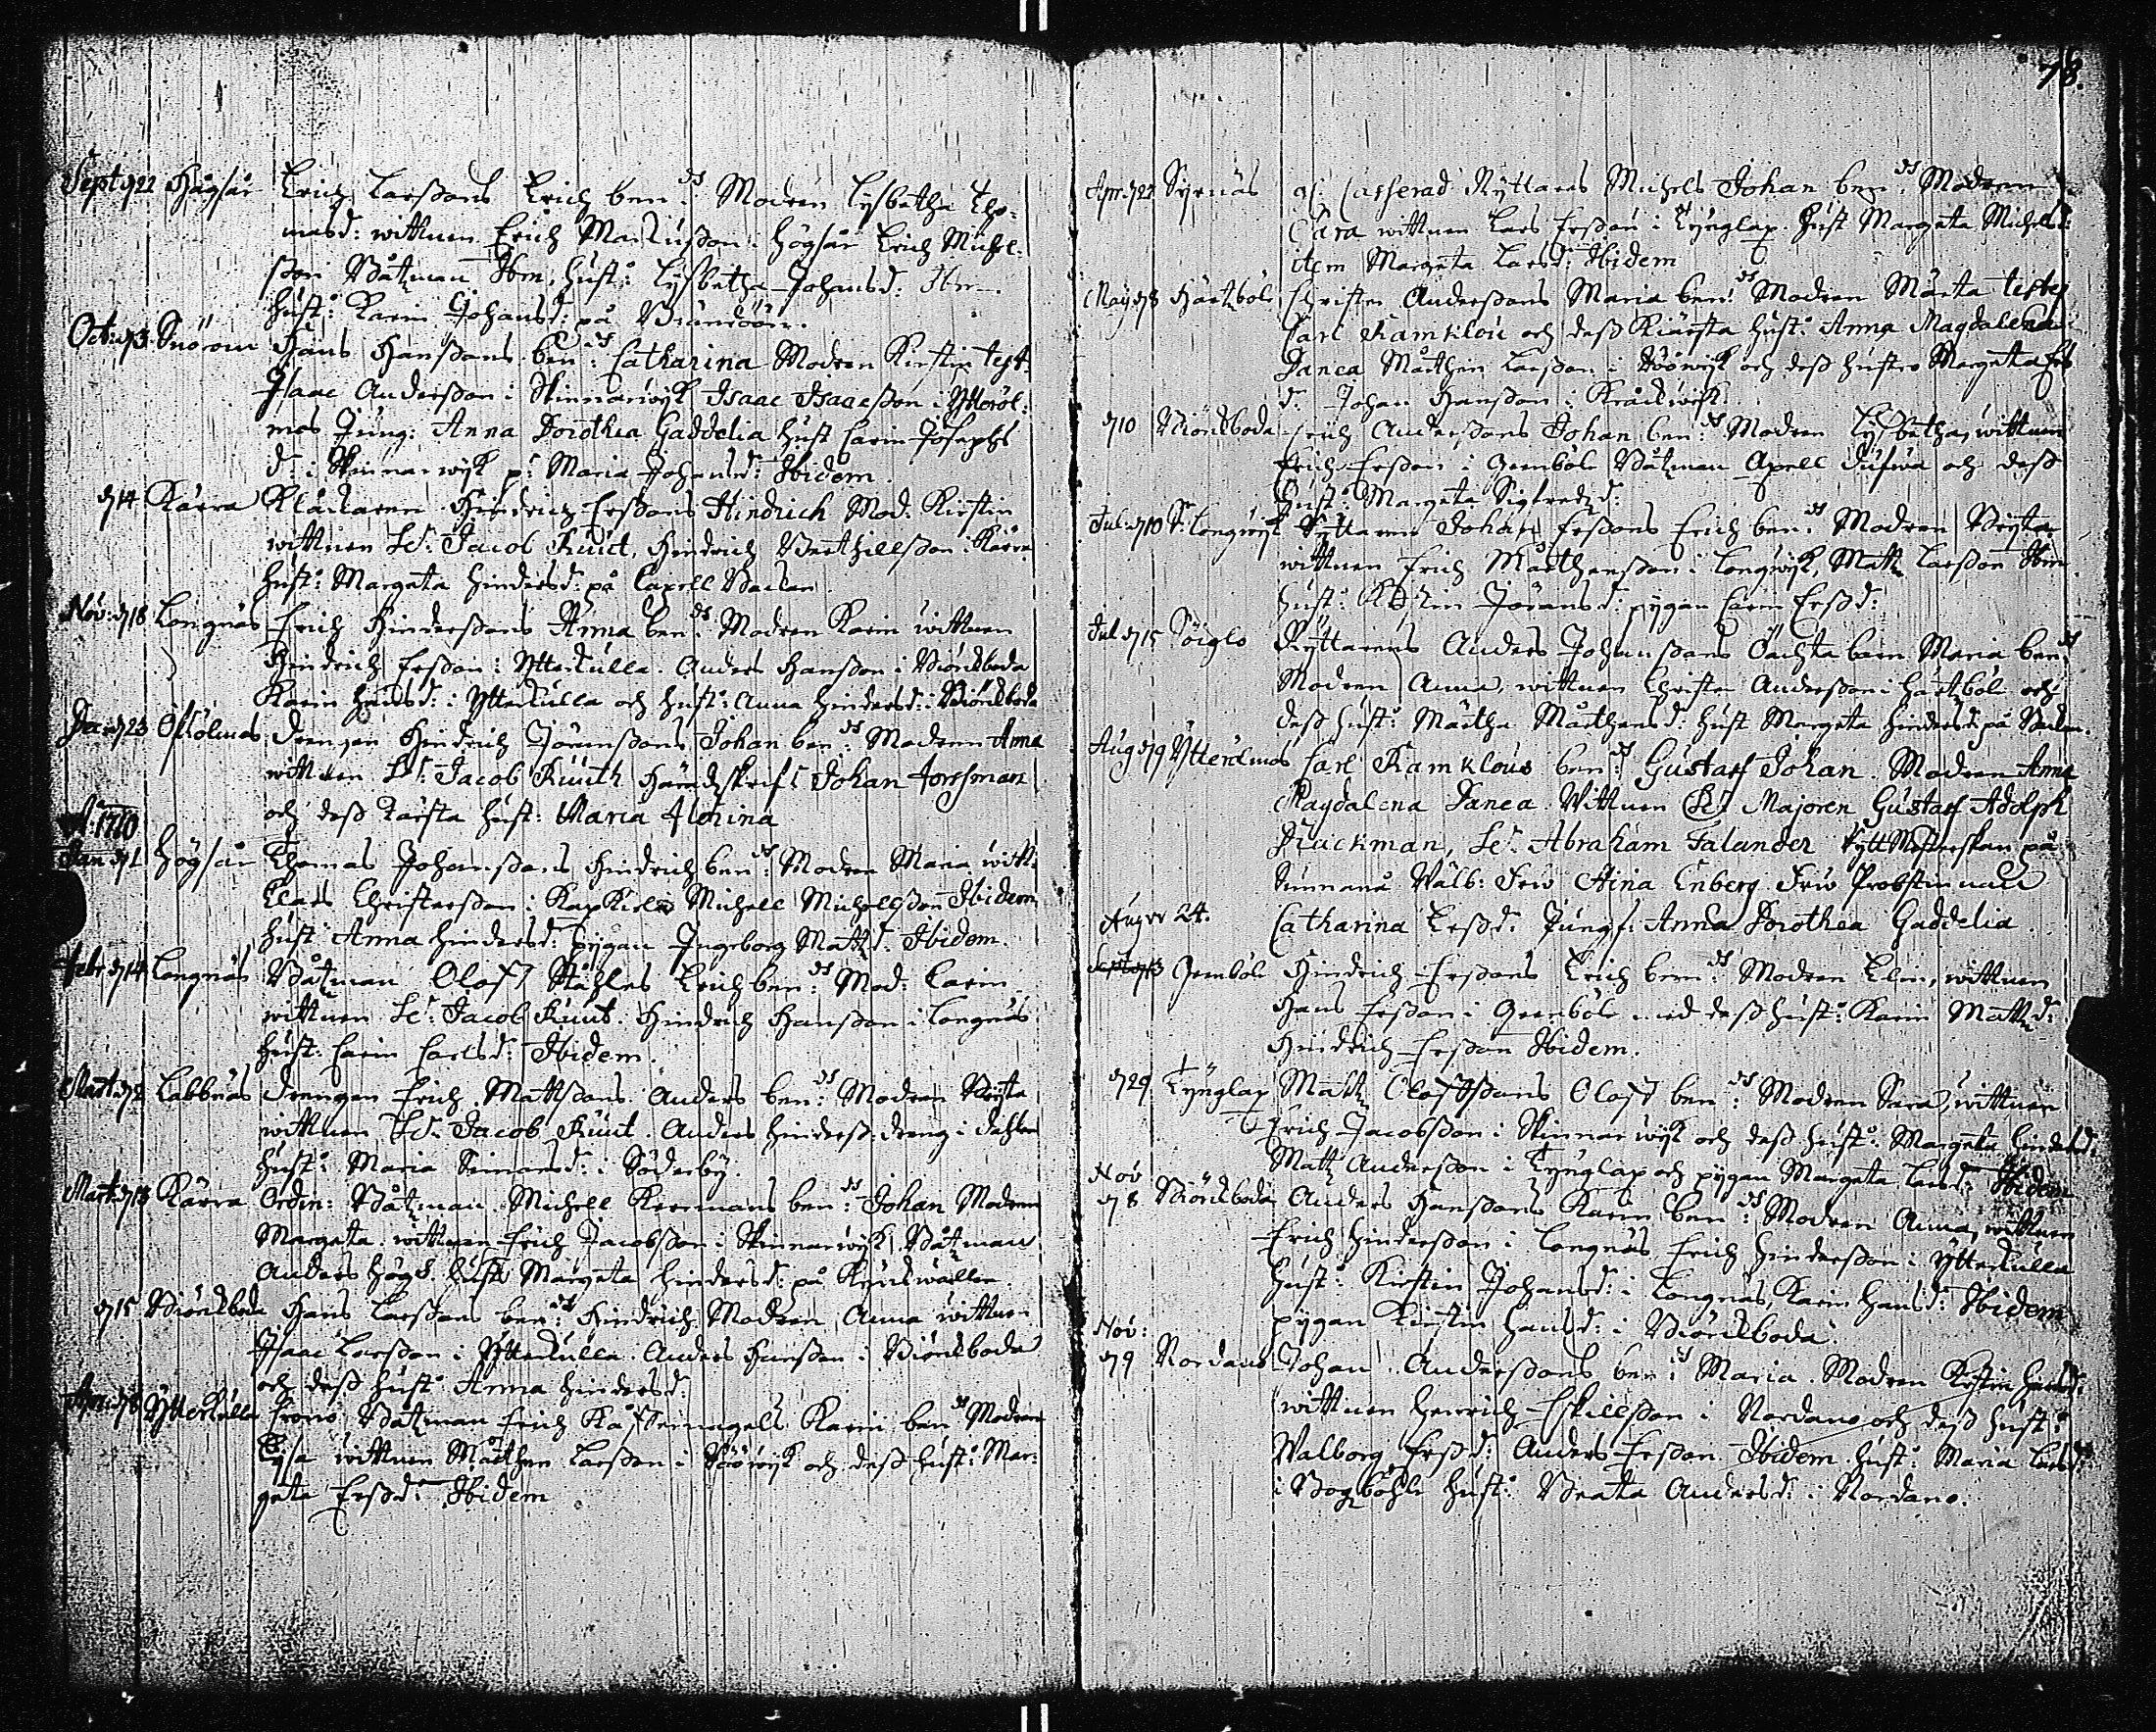 78.
Sept: d 22 Högsår Erich Larßons Erich ben:ds Modren Lysbetha Tho-
masd: wittnen Erich Markusson i Högsår Erich Michel-
ßon Båtzman Ibm, hust: Lysbetha Johansd: Ibm
hust: Karin Johansd: på
Oct: d 3 Hans Hanßons ben:ds Catharina Modren Kirstin test.
Isaac Anderßon i Skinnarwyk Isaac Isaacßon i Ytteröl-
mos Jung: Anna Dorothea Gaddelia hust Carin Josephs
d: i Skinnarwyk p: Maria Johansd: Ibidem.
d 14 Kärra Klåckaren Hindrich Erßons Hindrich Mod: Kirstin
wittnen Hr: Jacob Kuut, Hindrich Berthillßon i Kärra
hust: Margeta Hindersd: på Capell Backen
Nov: d 18 Longnäs Erich Hinderßons Anna ben:ds Modren Karin wittnen
Hindrich Erßon i Ytterkulla Anders Hanßon i Biörckboda
Karin Hansd: i Ytterkulla och hust: Anna Hindersd: i Biörckboda
d 23 Drengen Hindrich Jöranßons Johan ben:ds Modren Anna
wittnen Hr: Jacob Kuuth Häradzskrif: Johan Forsman
och deß kärsta hust: Maria Alorina
A: 1710
Jan d 1 Högsår Thomas Johanßons Hindrich ben:ds Modren Maria witt:
Clars Christerßon i Michell Michellßon Ibidem
hust Anna Hindersd: pygan Ingeborg Mattzd: Ibidem.
Febr: d 14 Longnäs Båtzman Oloff Ståhles Erich ben:ds Mod: Carin
wittnen Hr: Jacob Kuut. Hindrich Hanßon i Longnäs
hust: Carin Carlsd: Ibidem.
Mart: d 2 Labbnäs Drengen Erich Mattßons Anders ben:ds Modren Bryta
wittnen Hr: Jacob Kuut. Anders Hinderß: dreng i
hust: Maria Simonsd: i Söderby.
Mart: d 13 Kärra Ordin: Båtzman Michell ben:ds Johan Modren
Margeta wittnen Erich Jacobßon i Skinnarwyk Båtzman
Anders Högh hust Margeta Hindersd: på
d 15 Biörckboda Hans Larßons ben:ds Hindrich Modren Anna wittnen
Isaac Larßon i Ytterkulla Anders Hanßon i Biörckboda
och deß hust: Anna Hindersd:
Apr: d 8 Ytterkulla Båtzman Erich Karin ben:ds Modren
Lysa wittnen Mårthen Larßon i och deß hust: Mar-
geta Erßd: Ibidem
Apr: d 22 Syrnäs Ryttares Michels Johan ben:ds Modren
Cara wittnen Lars Erßon i Tynglax hust Margeta Michelsd:
item Margeta Larsd: Ibidem
May d 8 Hertzböle Christer Anderßons Maria ben:ds Modren Märta testes
Carl Ramklou och deß Kiärsta hust: Anna Magdalena
Danea Mårthen Larßon i och deß hustro Margeta Ers
d: Johan Hanßon i
d 10 Biörckboda Erich Anderßons Johan ben:ds Modren Lysbetha, wittnen
Erich Erßon i Genböle Båtzman Axell Dufwa och deß
hust: Margeta Sigfredzd:
Jul: d 10 S: Longwyk Ryttaren Johan Erßons Erich ben:ds Modren Bryta
wittnen Erich Mårthenßon i Longwyk, Mattz Larßon Ibm
hust: Kirstin Jöransd: pygan Carin Erßd:
Jul d 15 Söiglo Ryttarens Anders Johanßons Maria ben:ds
Modren Anna, wittnen Christer Anderßon i Hertzböle och
deß hust: Märtha Mårthensd: hust Margeta Hindersd: på
Aug d 9 Ytterölmos Carl Ramklous ben:ds Gustaf Johan. Modren Anna
Magdalena Danea. Wittnen Hr: Majoren Gustaf Adolph
Hr: Abraham Falander RyttMästerskan på
Sunnanå Wälb: Fru Stina Enberg. Fru Probstinnan
Aug 24. Catharina Erßd: Jungf: Anna Dorothea Gaddelia.
Sept d 13 Genböle Hindrich Erßons Erich ben:ds Modren Elin, wittnen
Hans Erßon i Genböle med deß hust: Karin Mattzd:
Hindrich Erßon Ibidem.
d 29 Tynglax Mattz Oloffßons Oloff ben:ds Modren Sara, wittnen
Erich Jacobßon i Skinnarwyk och deß hust: Margeta Hindersd:
Mattz Anderßon i Tynglax och pygan Margeta Larsd: Ibidem
Nov
d 8 Biörckboda Anders Hanßons Karin ben:ds Modren Anna, wittnen
Erich Hinderßon i Longnäs, Erich Hinderßon i Ytterkulla
hust: Kirstin Johansd: i Longnäs, Karin Hansd: Ibidem
pygan Kirstin Hansd: i Biörckboda.
Nov:
d 9 Nordanå Johan Anderßons ben:ds Maria. Modren Kirstin Hansd:
wittnen Henrich Eskillßon i Nordanå och deß hust:
Walborg Erßd: Anders Erßon Ibidem hust: Maria Larsd:
i Bogzböhle hust: Beata Andersd: i Nordano.